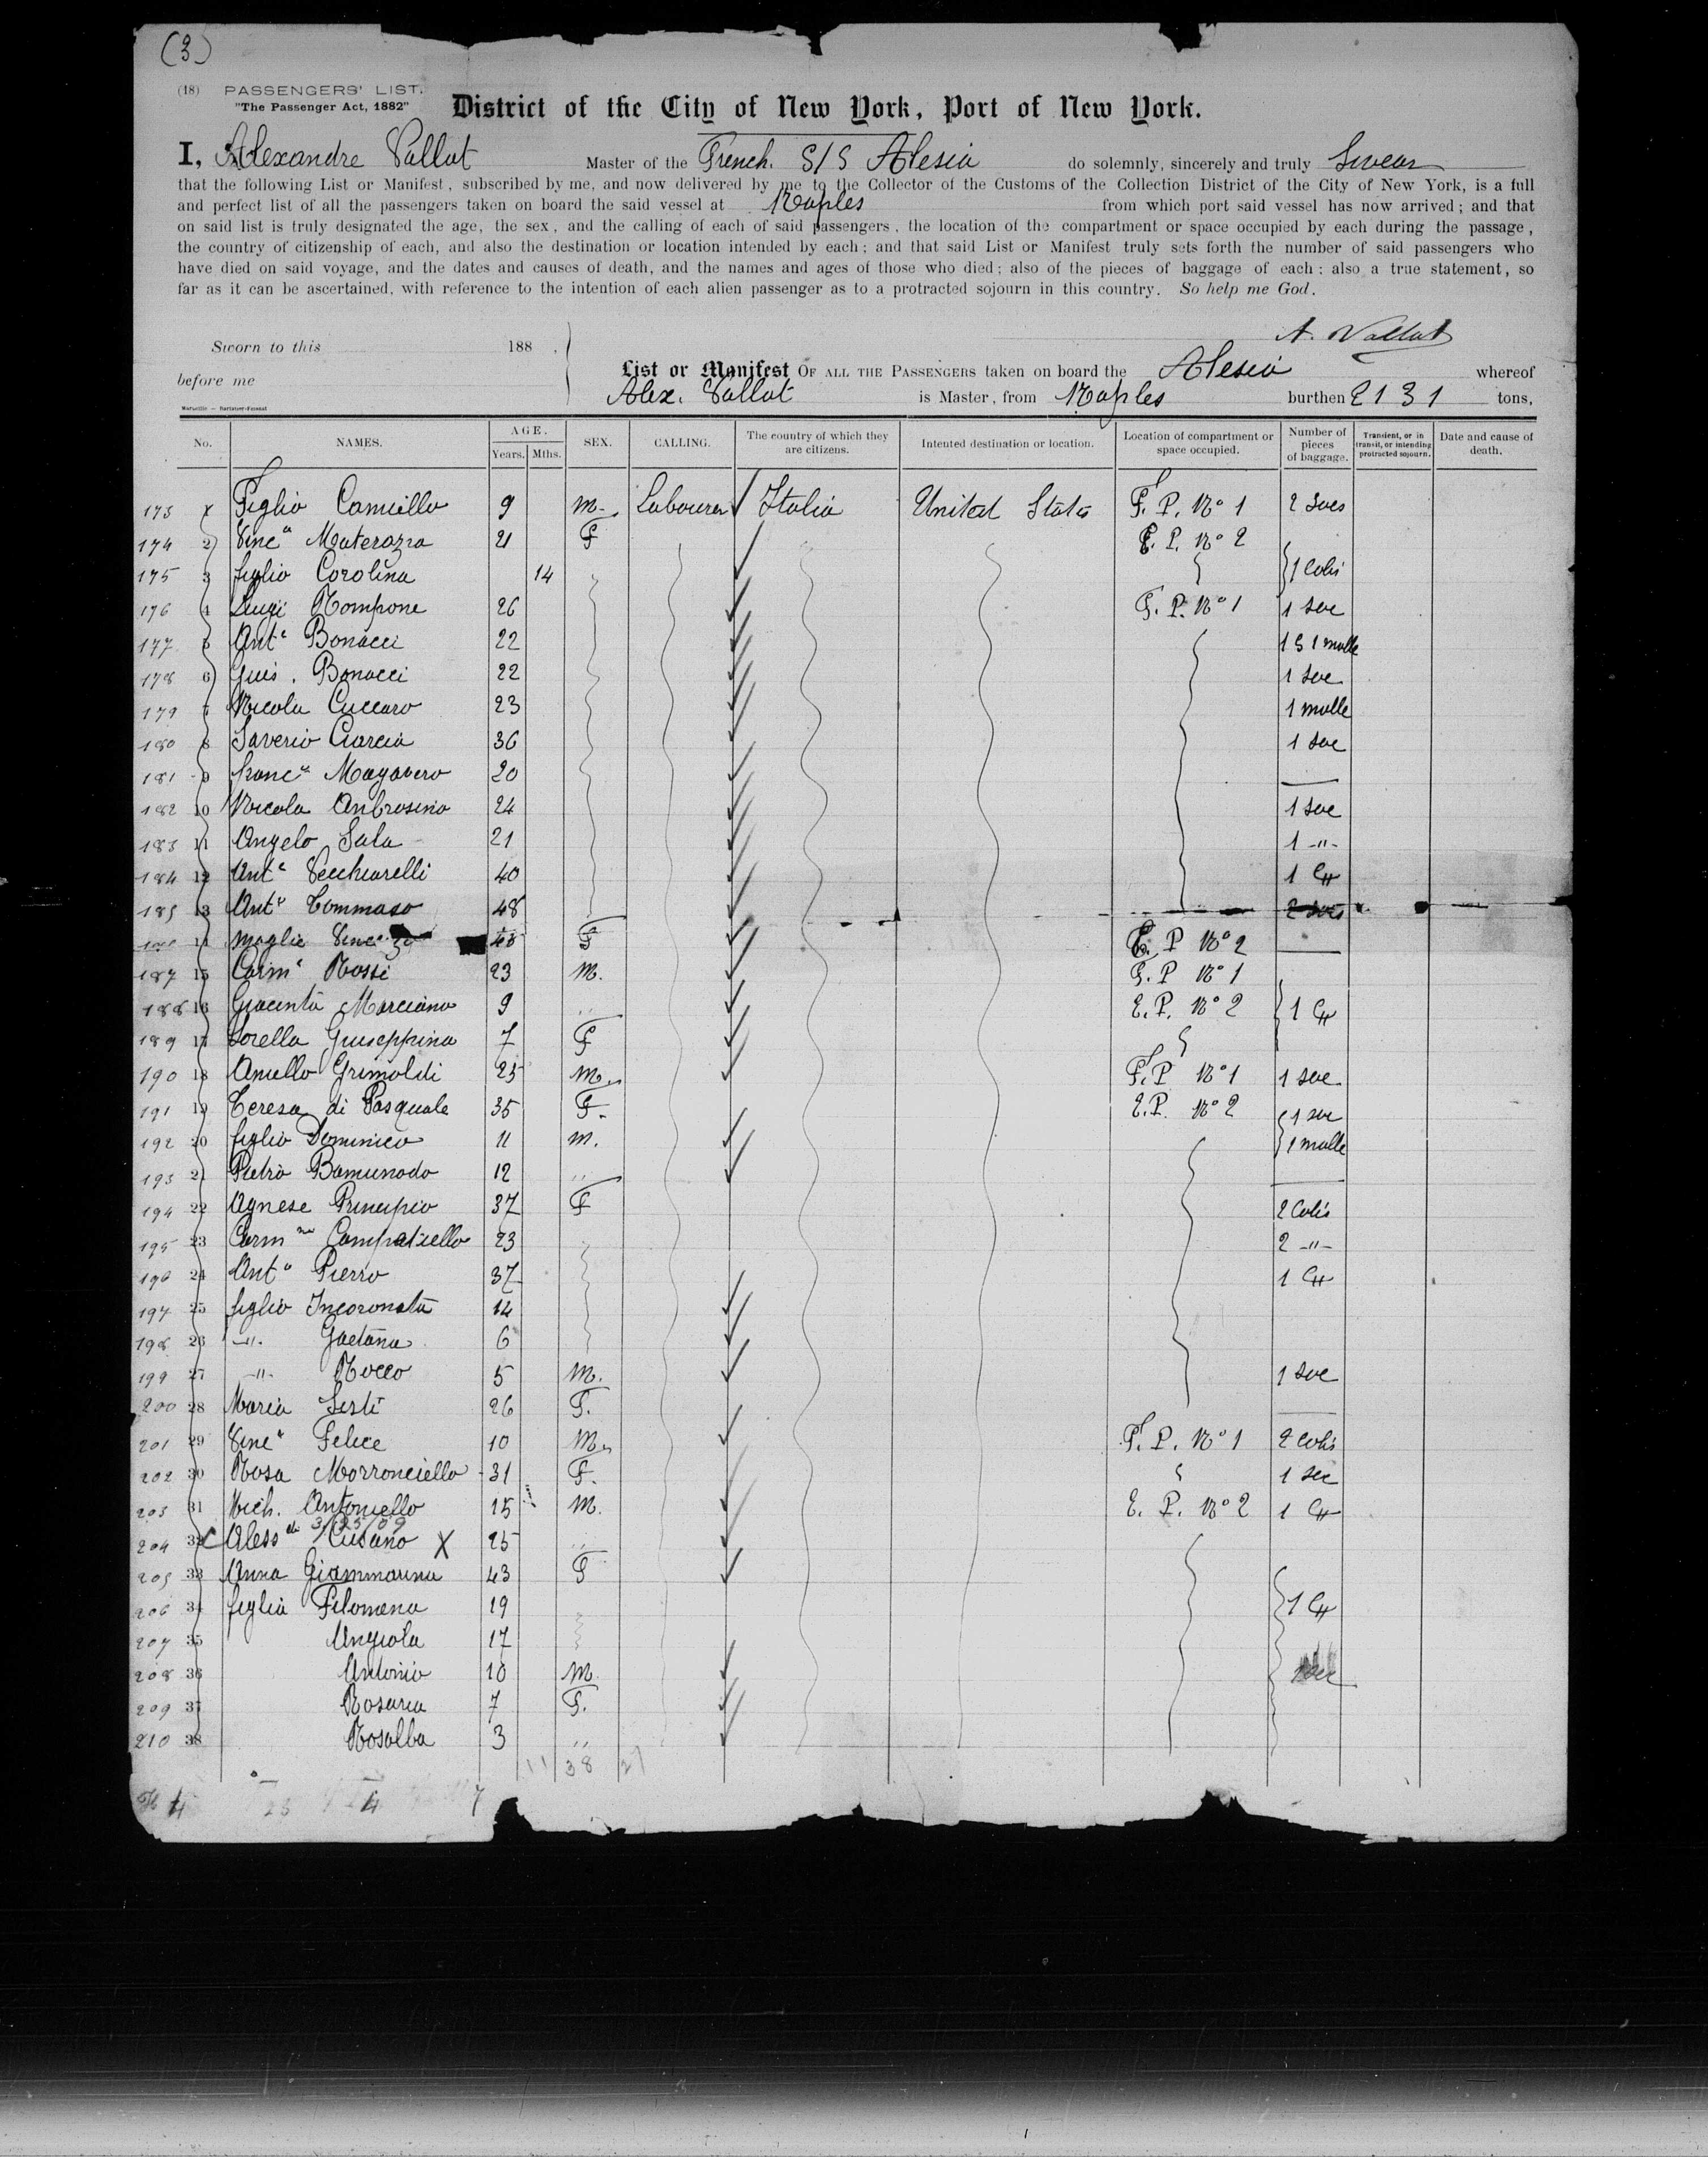 (3)
(18) PASSENGERS' LIST.
"The Passenger Act, 1882"
District of the City of New York, Port of New York.
I, Alexandre Vallat Master of the French. S/S Alesia do solemnly, sincerely and truly Swear
that the following List or Manifest, subscribed by me, and now delivered by me to the Collector of the Customs of the Collection District of the City of New York, is a full
and perfect list of all the passengers taken on board the said vessel at Naples from which port said vessel has now arrived; and that
on said list is truly designated the age, the sex, and the calling of each of said passengers, the location of the compartment or space occupied by each during the passage,
the country of citizenship of each, and also the destination or location intended by each; and that said List or Manifest truly sets forth the number of said passengers who
have died on said voyage, and the dates and causes of death, and the names and ages of those who died; also of the pieces of baggage of each; also a true statement, so
far as it can be ascertained, with reference to the intention of each alien passenger as to a protracted sojourn in this country. So help me God.
A. Vallat
Sworn to this 188 .
before me
List or Manifest OF ALL THE PASSENGERS taken on board the Alesia whereof
Alex. Vallat is Master, from Naples burthen 2131 tons,
No. NAMES. AGE. Years. Mths. SEX. CALLING. The country of which they are citizens. Intented destination or location. Location of compartment or space occupied. Number of pieces of baggage. Transient, or in transit, or intending protracted sojourn. Date and cause of death.
173 Figlio Camillo 9 M. Labourer Italia United States F. P. No 1 2 Sacs
174 2 Vinca Materazza 21 F E. P. No 2
175 3 figlio Carolina 14 1 Colis
176 4 Luigi Rompone 26 F. P. No 1 1 Sac
177 5 Anto Bonacci 22 1 S 1 malle
178 6 Gius. Bonacci 22 1 Sac
179 7 Nicola Cuccaro 23 1 malle
180 8 Saverio Ciarcia 36 1 Sac
181 9 Franco Magavero 20
182 10 Nicola Ambrosino 24 1 Sac
183 11 Angelo Sala 21 1 -"-
184 12 Anto Vecchiarelli 40 1 C
185 13 Anto Tommaso 48 2 Sacs
14 Moglie F E. P No 2
187 15 Carmo Rossi 23 M. F. P No 1
188 16 Giacinto Marciano 9 " E. P. No 2 1 C
189 17 Sorella Giuseppina 7 F
190 18 Aniello Grimaldi 25 M. F. P No 1 1 Sac
191 19 Teresa di Pasquale 35 F. E. P. No 2 1 sac
192 20 figlio Dominico 11 M. 1 malle
193 21 Pietro 12 "
194 22 Agnese Principio 37 F 2 Colis
195 23 Carmna 23 2 -"-
196 24 Anta Pierro 37 1 C
197 25 figlio Incoronata 14
198 26 -"- Gaetana 6
199 27 -"- Rocco 5 M. 1 Sac
200 28 Maria Sesti 26 F.
201 29 Vinco Felice 10 M. F. P. No 1 2 Colis
202 30 Rosa Morronciello 31 F. 1 sac
203 31 Mich. Antoniello 15 M. E. P. No 2 1 C
3/25/09
204 32 Alessdro Cusano X 25 "
205 33 Anna Giammarina 43 F
206 34 figlia Filomena 19 1 C
207 35 Angiola 17
208 36 Antonio 10 M.
209 37 Rosaria 7 F.
210 38 Rosalba 3 "
11 38 27
4 7